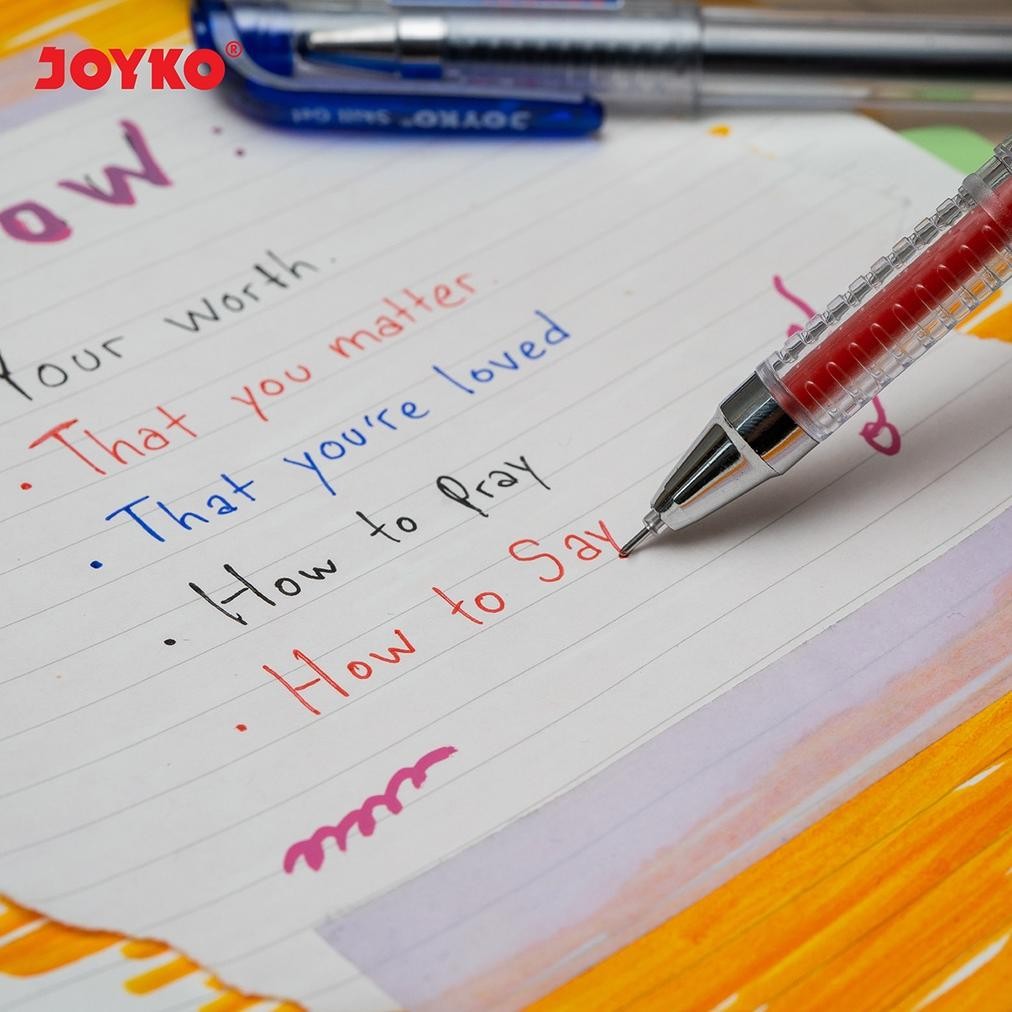 JOYKO®
JOYKO® Skill Gel
ow :
Your worth.
• That you matter.
• That you're loved
• How to Pray
• How to Say